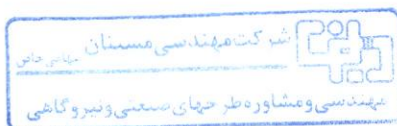 شرکت مهندسی مسینان
سهامی خاص
مهندسی و مشاوره طرحهای صنعتی و نیروگاهی